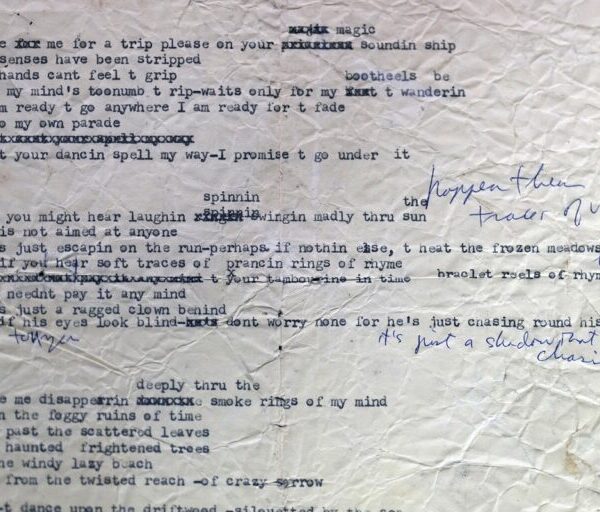 magic
e me for a trip please on your soundin ship
senses have been stripped
hands cant feel t grip
bootheels be
my mind's toonumb t rip-waits only for my t wanderin
m ready t go anywhere I am ready for t fade
o my own parade
t your dancin spell my way-I promise t go under it
happen then
spinnin
the
traces of
you might hear laughin swingin madly thru sun
is not aimed at anyone
s just escapin on the run-perhaps if nothin else, t heat the frozen meadows
if you hear soft traces of prancin rings of rhyme
t your tambourine in time
bracelet reels of rhym
neednt pay it any mind
s just a ragged clown behind
if his eyes look blind- dont worry none for he's just chasing round his
it's just a shadow that
chasi
deeply thru the
e me disapperrin smoke rings of my mind
n the foggy ruins of time
past the scattered leaves
haunted frightened trees
he windy lazy beach
from the twisted reach -of crazy sorrow
t dance upon the driftwood -silouetted by the